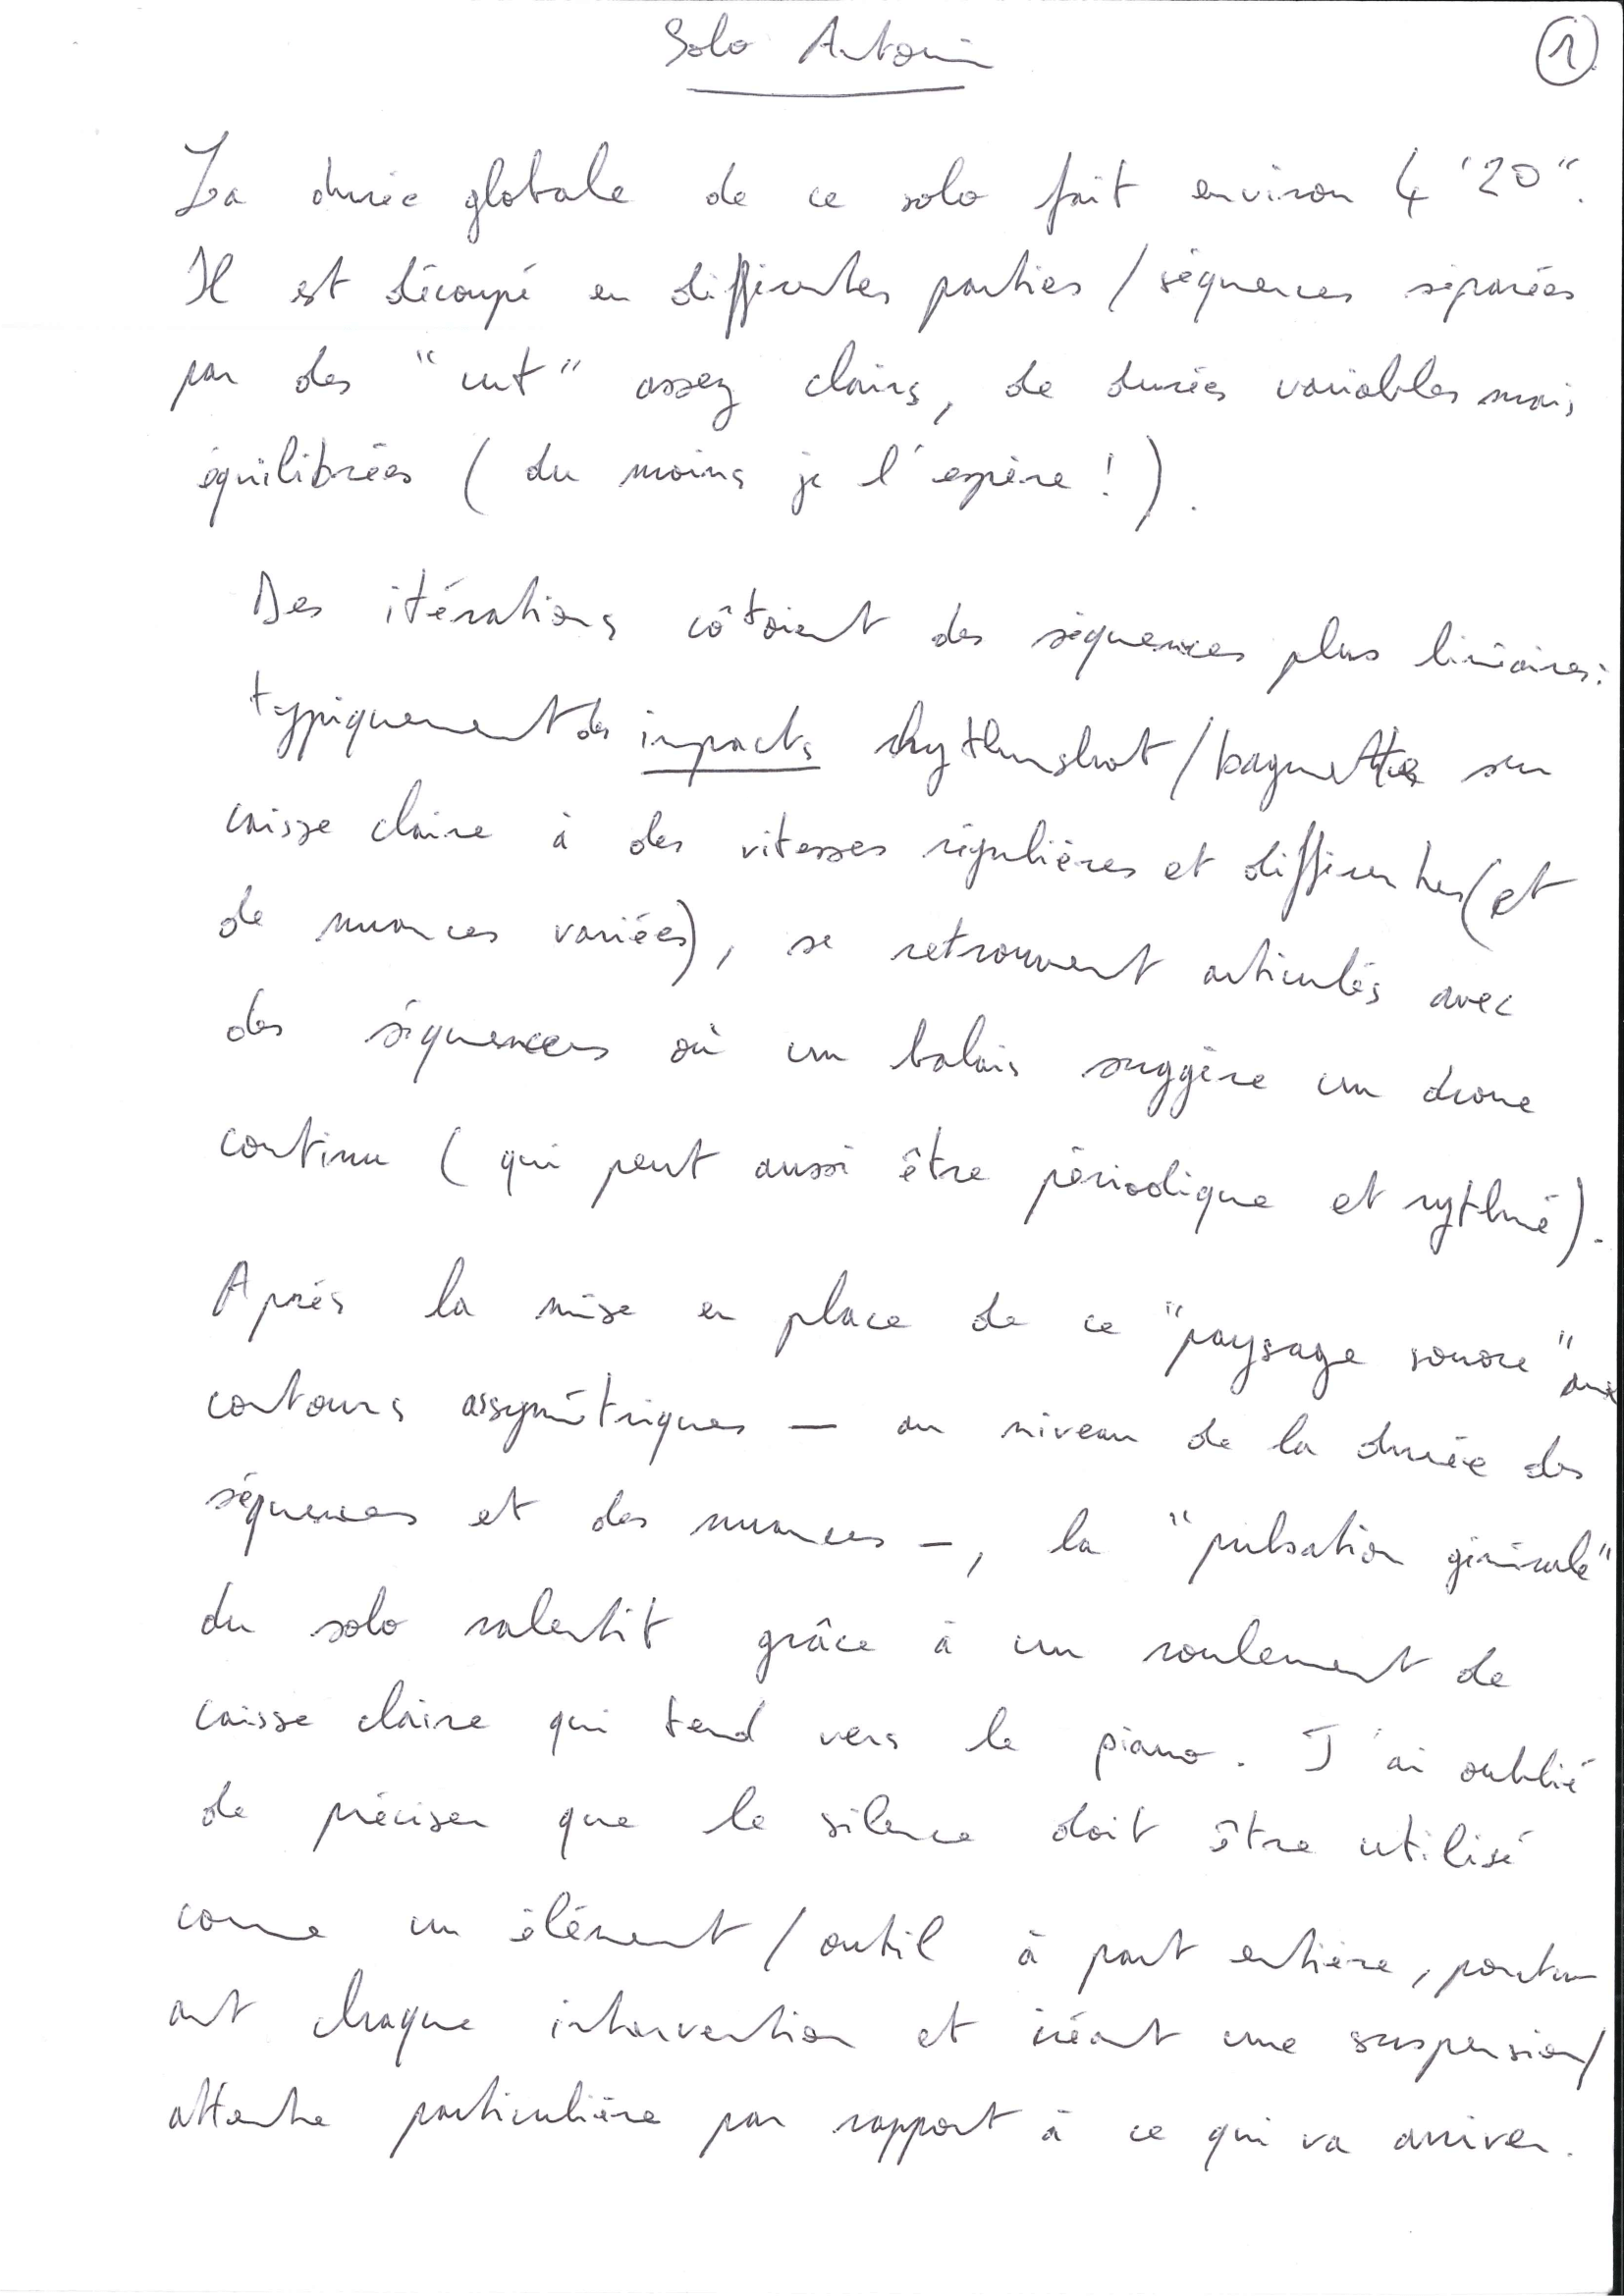 Solo Antonin
1
La durée globale de ce solo fait environ 4'20".
Il est découpé en différentes parties / séquences séparées
par des "cut" assez clairs, de durées variables mais
équilibrées (du moins je l'espère !).
Des itérations côtoient des séquences plus linéaires :
typiquement des impacts rhythmshot / baguettes sur
caisse claire à des vitesses régulières et différentes (et
de nuances variées), se retrouvent articulés avec
des séquences où un balais suggère un drone
continu (qui peut aussi être périodique et rythmé).
Après la mise en place de ce "paysage sonore" aux
contours assymétriques — au niveau de la durée des
séquences et des nuances —, la "pulsation générale"
du solo ralentit grâce à un roulement de
caisse claire qui tend vers le piano. J'ai oublié
de préciser que le silence doit être utilisé
comme un élément / outil à part entière, ponctu-
ant chaque intervention et créant une suspension /
attente particulière par rapport à ce qui va arriver.